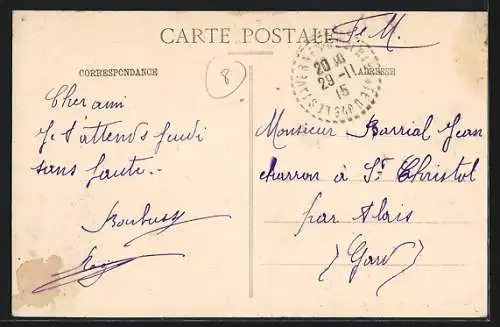 CARTE POSTALE
F. M.
CORRESPONDANCE
ADRESSE
8
20
29-11
15
Cher ami
Je t'attends jeudi
sans faute..
Monsieur Barrial Jean
charron à St Christol
par Alais
(Gard)